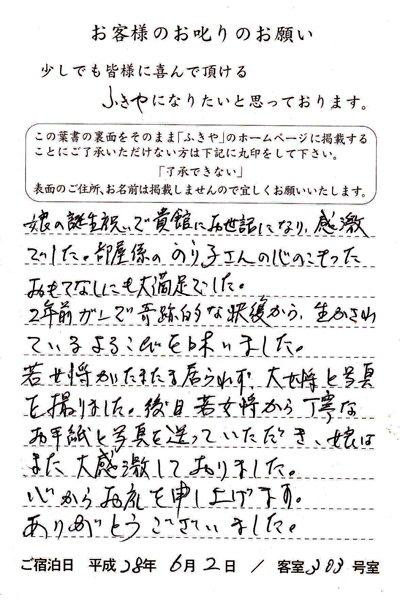 お客様のお叱りのお願い
少しでも皆様に喜んで頂ける
ふきやになりたいと思っております。
この葉書の裏面をそのまま「ふきや」のホームページに掲載する
ことにご了承いただけない方は下記に丸印をして下さい。
「了承できない」
表面のご住所、お名前は掲載しませんので宜しくお願いいたします。
娘の誕生祝いで貴館にお世話になり、感激
でした。部屋係の のり子さんの心のこもった
おもてなしにも大満足でした。
2年前ガンで奇跡的な 後から、生かされ
ているよろこびを味いました。
若女将がたまたま居られず、大女将と写真
を撮りました。後日若女将から丁寧な
お手紙と写真を送っていただき、娘は
また大感激しておりました。
心からお礼を申し上げます。
ありがとうございました。
ご宿泊日 平成28年 6月2日 / 客室303号室